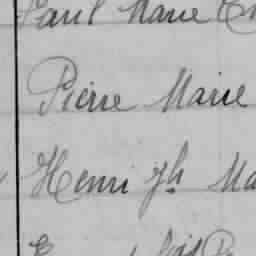 Paul Marie
Pierre Marie
Henri Jh Ma